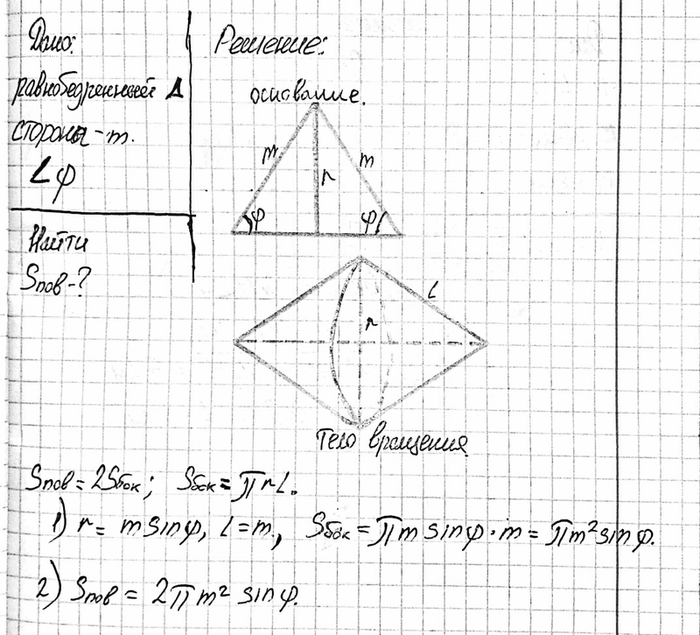 Дано:
равнобедренный Δ
стороны - m.
∠φ
Найти
Sпов-?
Решение:
основание.
m
m
r
φ
φ
L
r
Тело вращения
Sпов = 2Sбок; Sбок = πrL.
1) r = m sinφ, L = m, Sбок = πm sinφ·m = πm² sinφ.
2) Sпов = 2πm² sinφ.